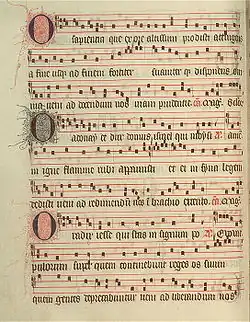 O sapiencia que ex ore altissimi prodisti attingens
a fine usq; ad finem fortiter suaviter q; disponens om
nia veni ad docendum nos viam prudencie
O adonay et dux domus israel qui
in igne flamme rubi apparuisti et ei in syna legem
dedisti veni ad redimendū nos ī brachio extento
O radix iesse qui stas in signum po
pulorum super quem continebunt reges os suum
quem gentes deprecabuntur veni ad liberandum nos